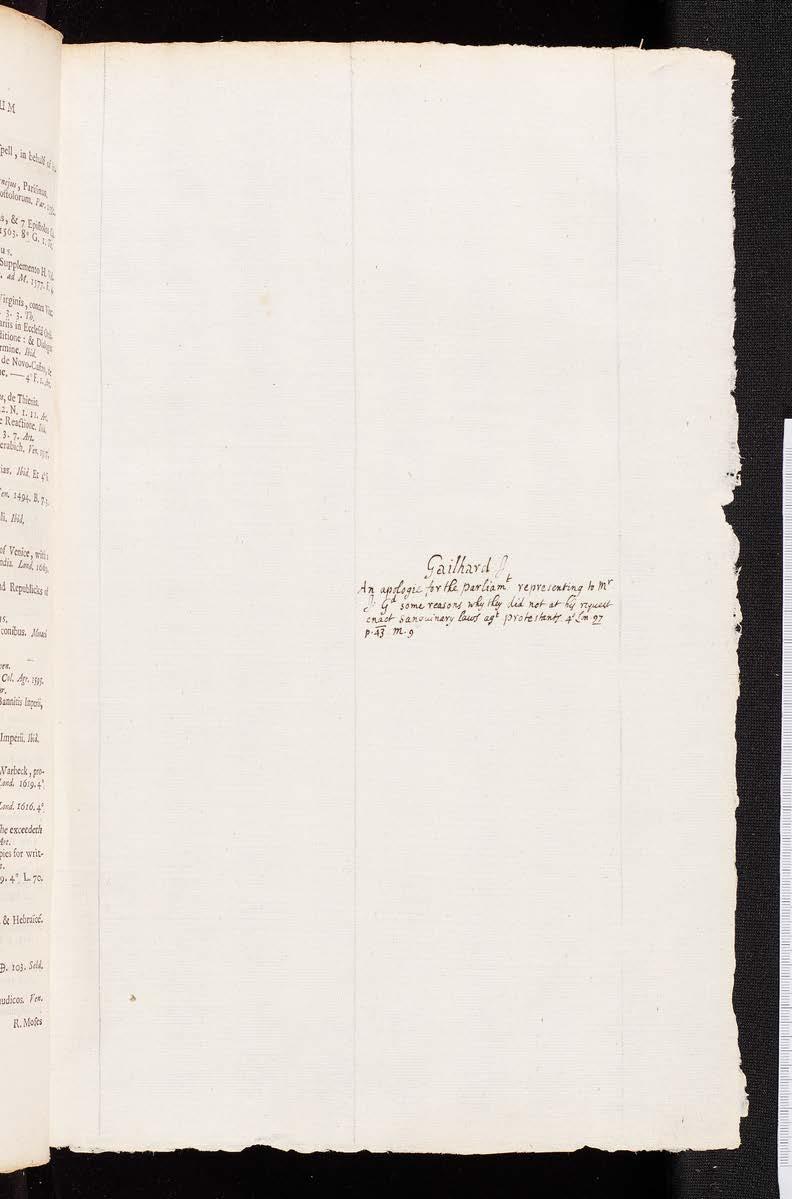 UM
spell, in behalf of
nejus, Parisinus.
ostolorum. Par.
s, & 7 Epistolas
1563. 8° G. 1.
us.
Supplemento H.
ad M. 1577. F.
Virginis, contra
3. 3. Th.
ariis in Ecclesiâ
ditione: & Dialogus
rmine. Ibid.
de Novo-Castro, &
ne. — 4° F. 1. Ar.
us, de Thienis.
2. N. 1. 11. Ar.
e Reactione. Ibid.
3. 7. Art.
erabich. Ven.
ias. Ibid. Et 4°
Ven. 1494. B. 7.
li. Ibid.
of Venice, with
ndia. Lond. 1669.
nd Republicks of
us.
conibus. Monaci
ven.
Col. Agr. 1595.
Bannitis Imperii,
Imperii. Ibid.
Warbeck, pro-
Lond. 1619. 4°.
Lond. 1616. 4°.
he exceedeth
Art.
pies for writ-
9. 4° L. 70.
& Hebraicè.
D. 103. Seld.
udicos. Ven.
R. Moses
Gailhard J
An apologie for the parliamt representing to Mr
J. Gd some reasons why they did not at his request
enact sanguinary laws agt protestants. 4° Lon 97
p. 43 M. 9